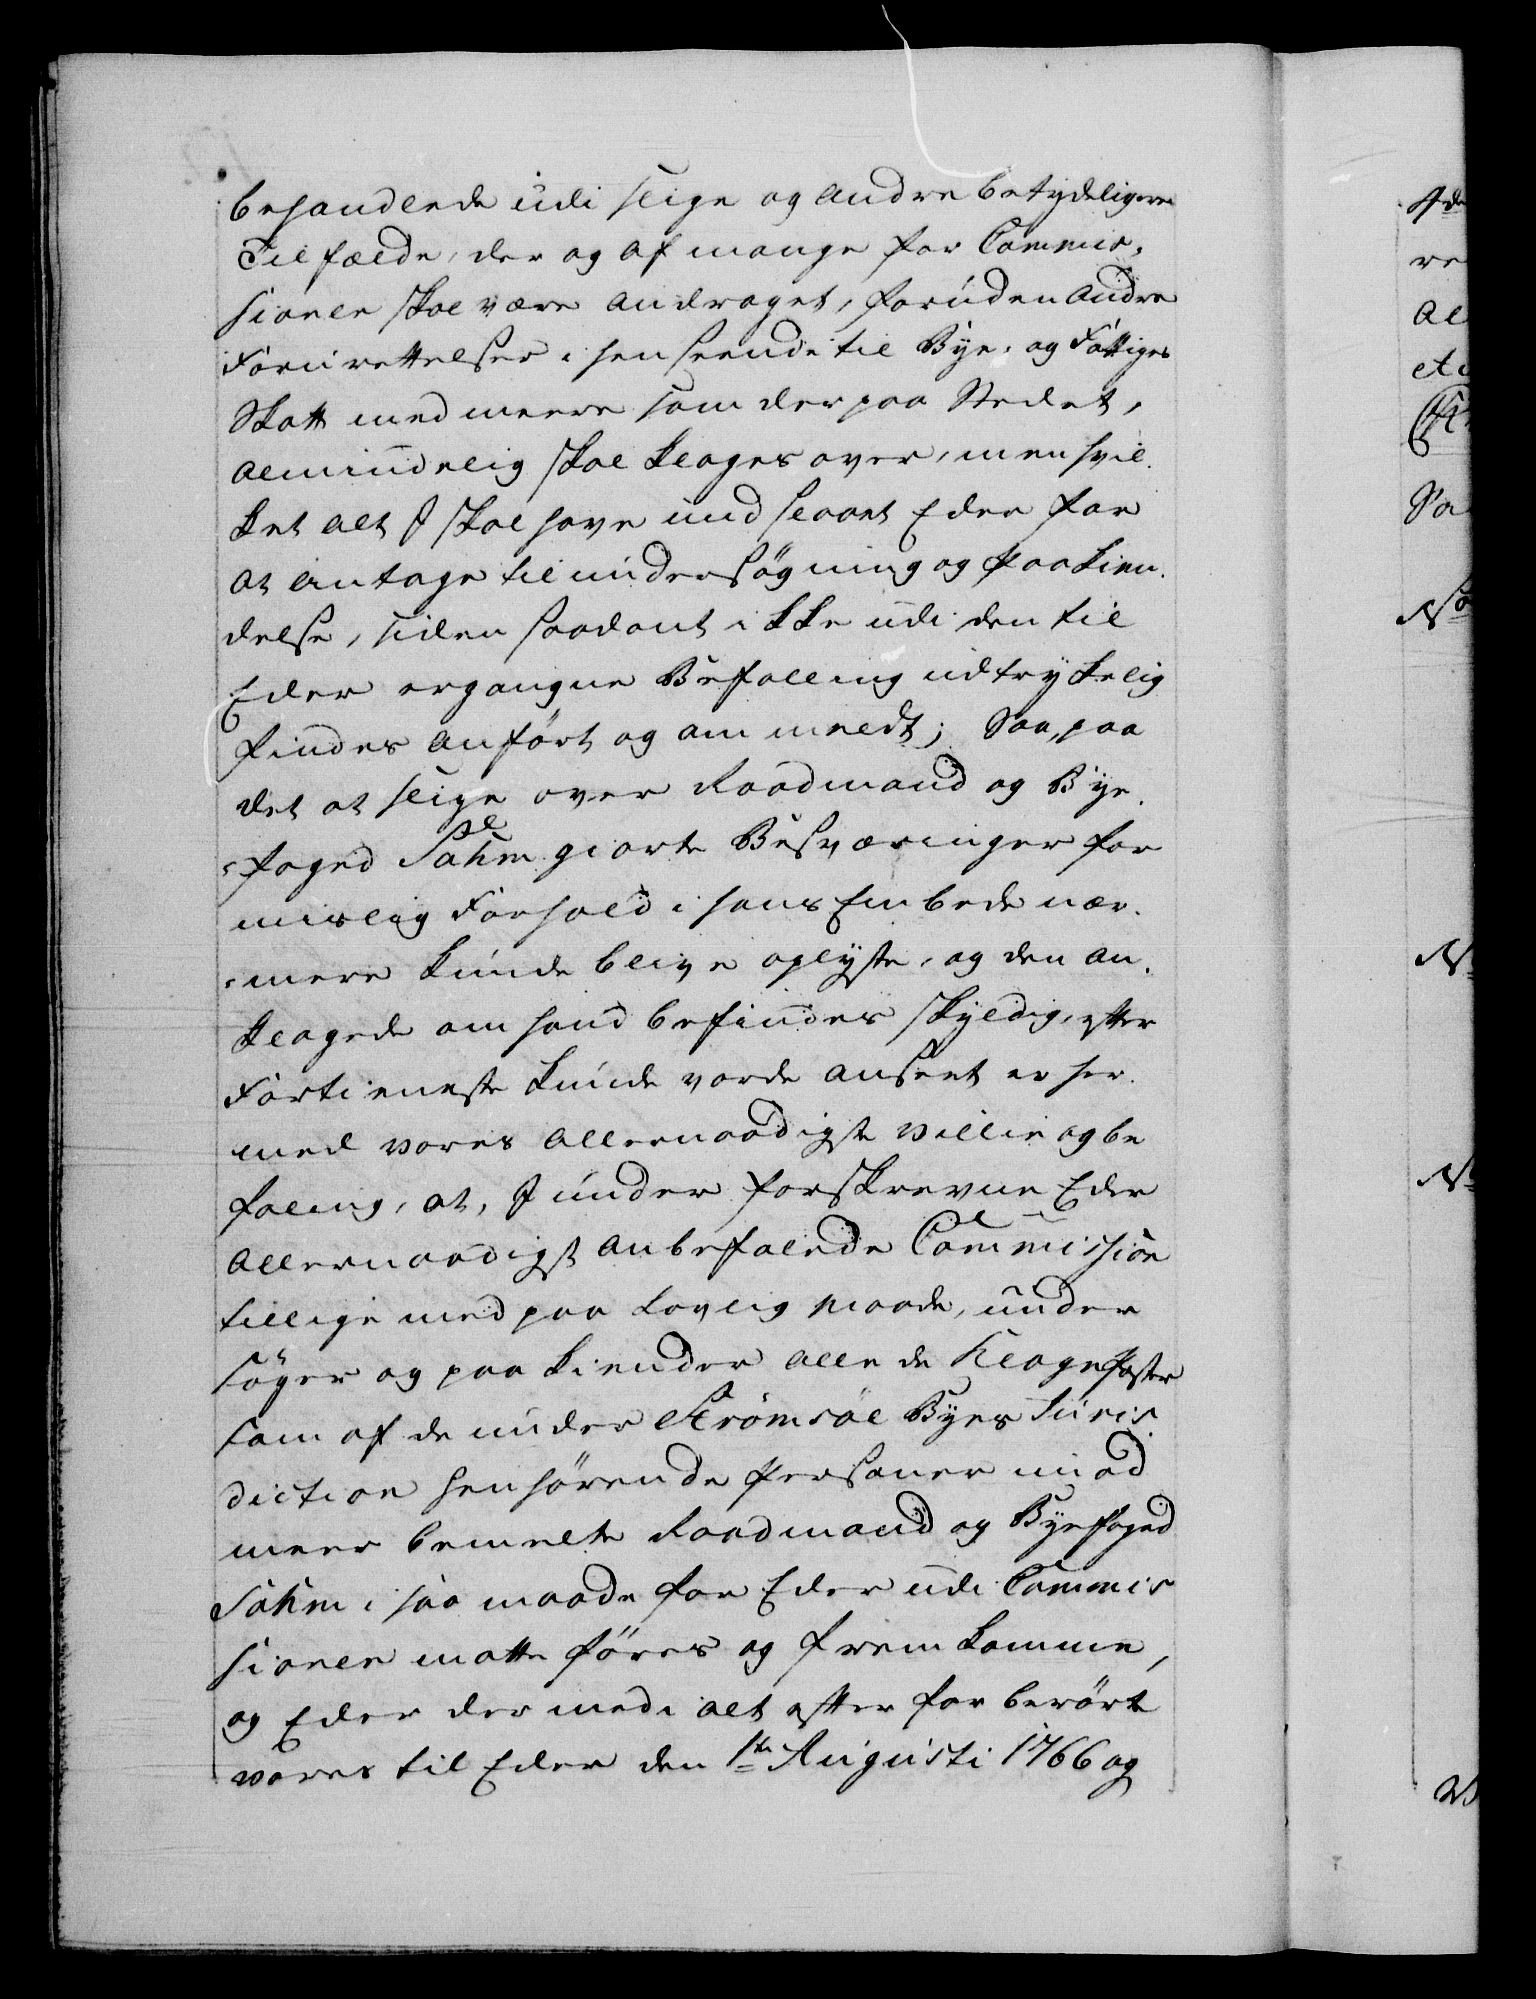 behandlede udi slige og andre betydeligere
Tilfælde, der og af mange for Commis-
sionen skal være andraget, foruden andre
Forurettelser i henseende til Bye- og Fattiges
Skatt med meere som der paa Stedet,
almindelig skal klages over, men hvil-
ket alt I skal have undslaaet Eder for
at antage til undersøgning og Paakien-
delse, siden saadant ikke udi den til
Eder ergangne Befalling udtrykelig
findes anført og ommeldt; Saa, paa
det at slige over Raadmand og Bye-
foged Sahm giorte Besværinger for
mislig Forhold i hans Embede nær-
mere kunde blive oplyste, og den an-
klagede om hand befindes skyldig, efter
Fortieneste kunde vorde anseet er her-
med vores allernaadigste villie og be
faling, at, I under forskrevne Eder
allernaadigst anbefalede Commission
tillige med paa lovlig Maade, under
søger og paakiender alle de Klageposter
som af de under Strømsøe Byes Juris
diction henhørende Personer imod
meer bemelte Raadmand og Byefoged
Sahm i saa maade for Eder udi Commis
sionen matte føres og fremkomme,
og Eder der med i alt efter forberørte
vores til Eder den 1ste Augusti 1766 og